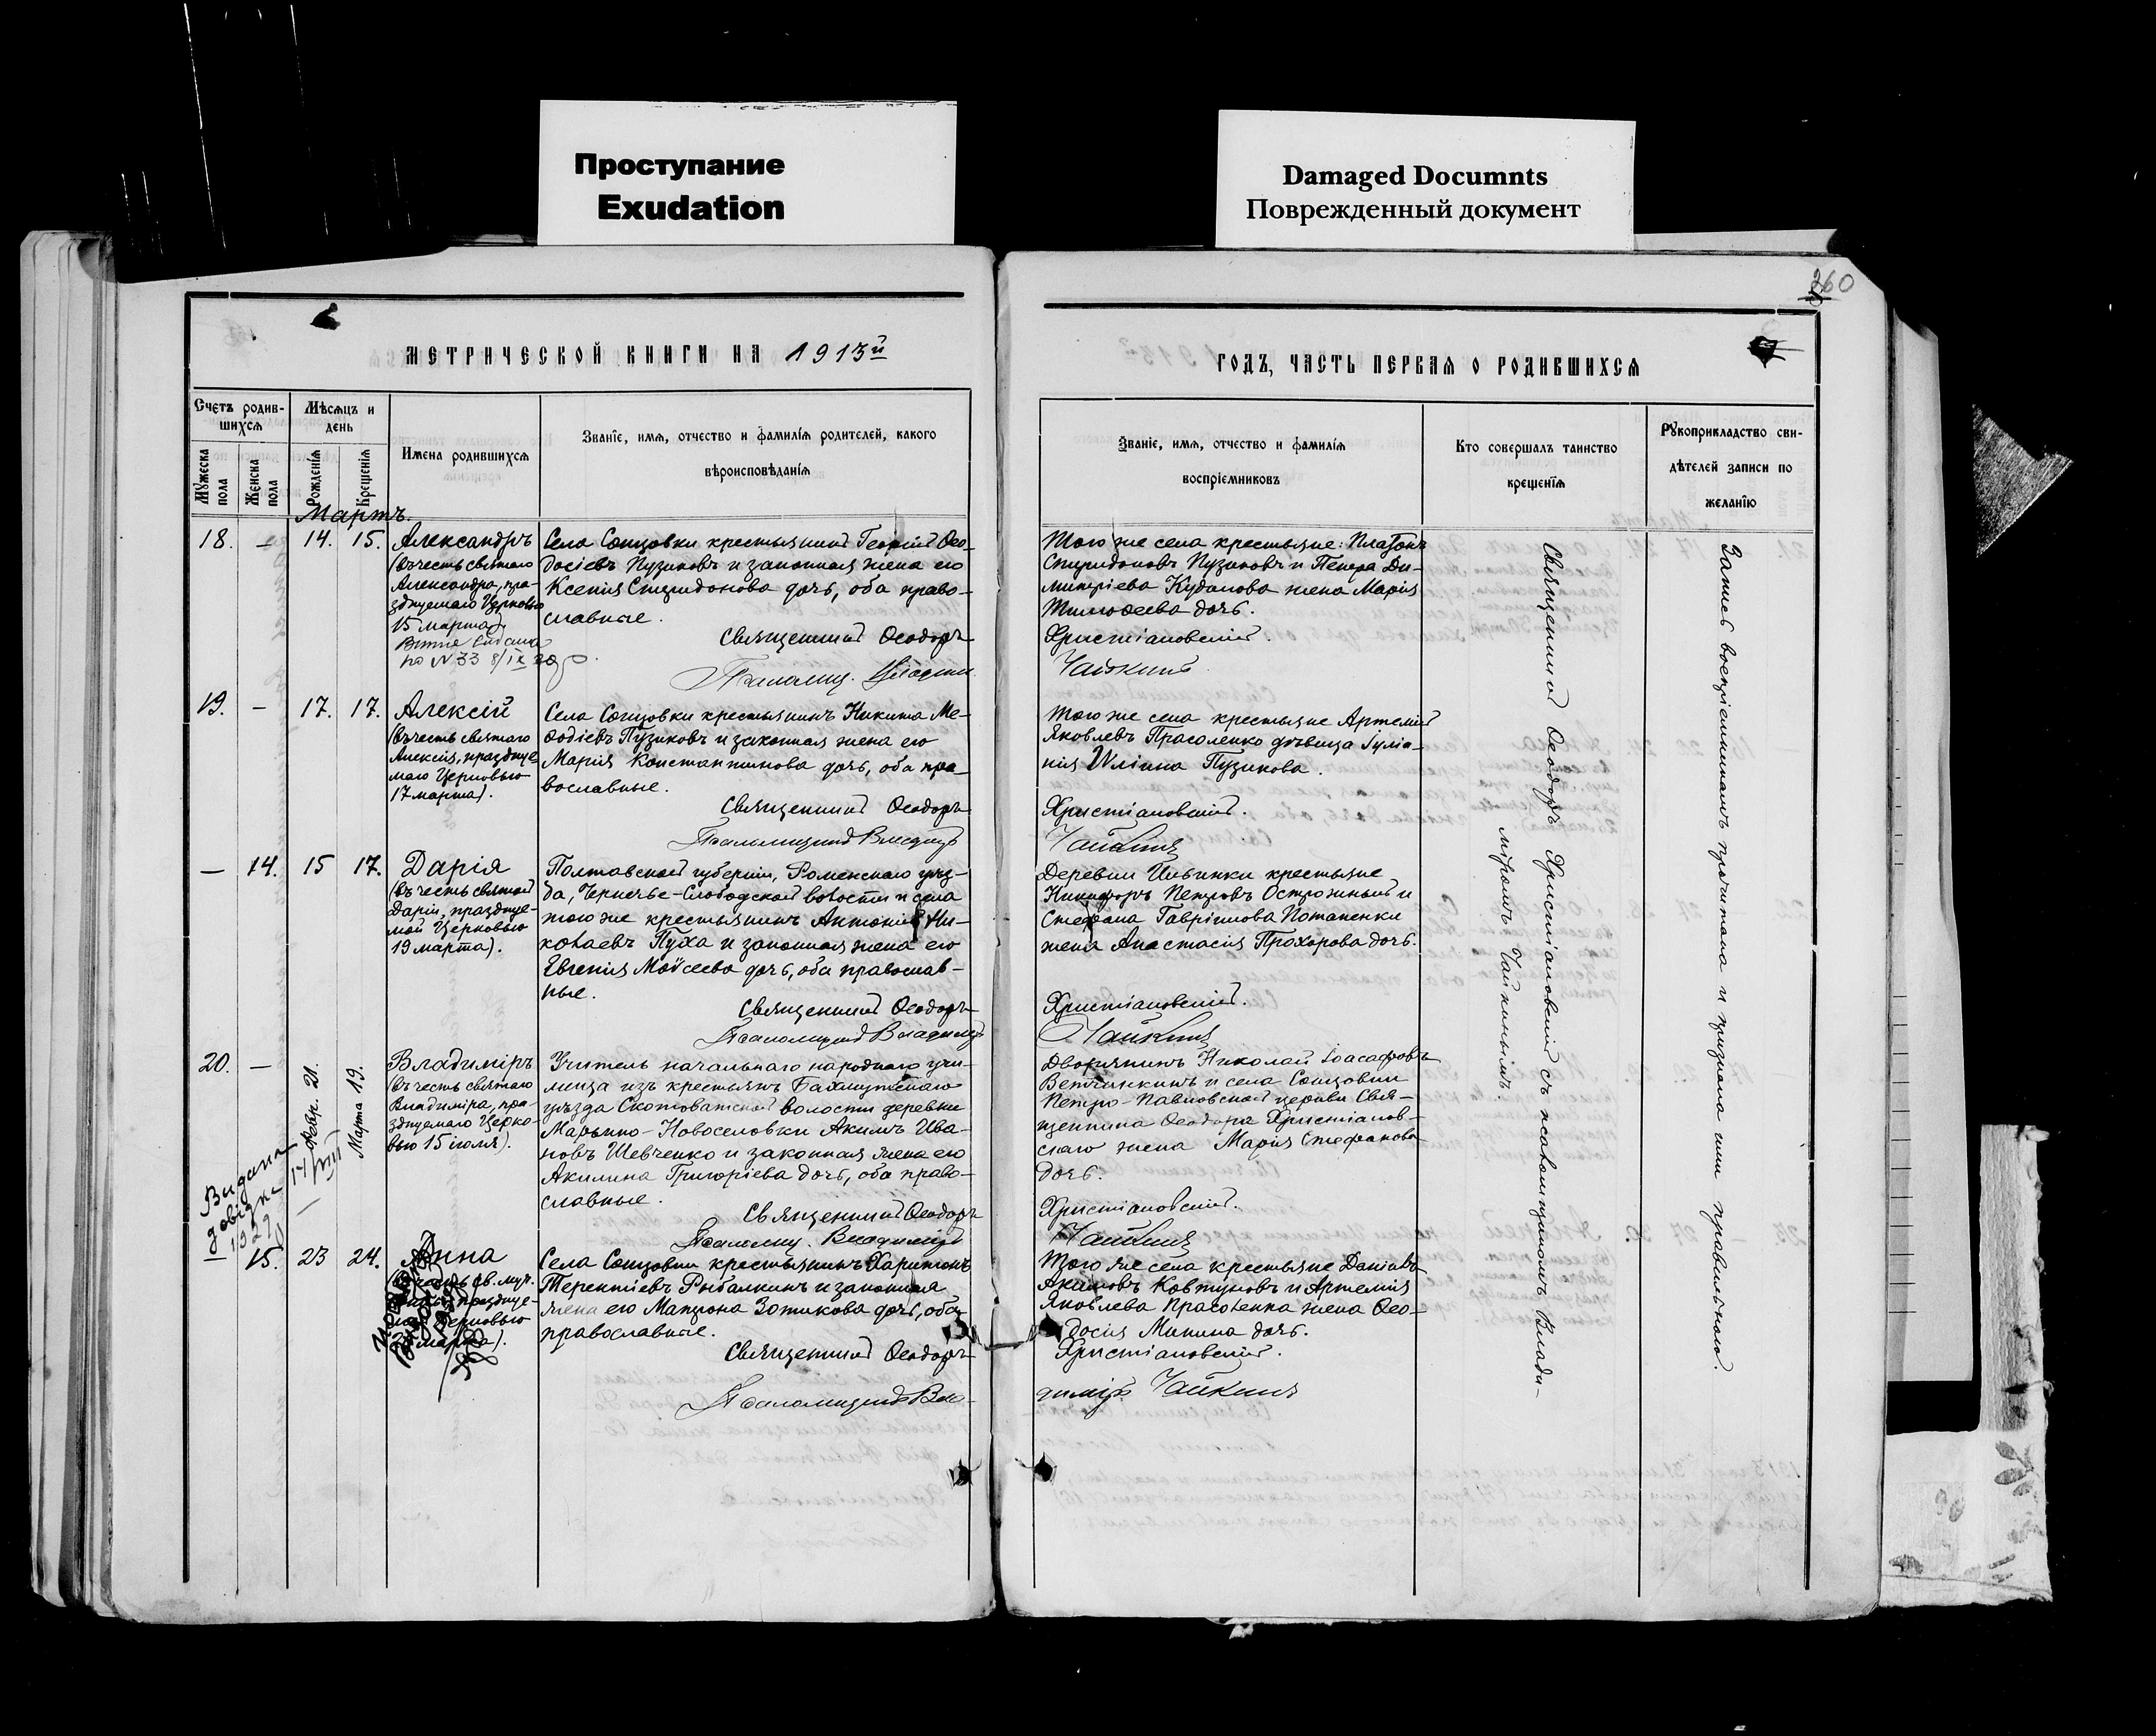 Проступание
Exudation
Damaged Documnts
Поврежденный документ
360
МЕТРИЧЕСКОЙ КНИГИ НА 1913й
Счетъ родив-
шихся
Мѣсяцъ и
день
Мужеска
пола
Женска
пола
Рожденія
Крещенія
Имена родившихся
Званіе, имя, отчество и фамилія родителей, какого
вѣроисповѣданія
Мартъ.
18. – 14. 15.
Александръ
(въ честь святаго
Александра, пра-
зднуемаго Церковью
15 марта).
по N 33 8/IX
Села Сонцовки крестьянинъ Георгій Ѳео-
досіевъ Пузиковъ и законная жена его
Ксенія Спиридонова дочь, оба право-
славные.
Священникъ Ѳеодоръ
19. – 17. 17.
Алексій
(въ честь святаго
Алексія, празднуе-
маго Церковью
17 марта).
Села Сонцовки крестьянинъ Никита Ме-
ѳодіевъ Пузиковъ и законная жена его
Марія Константинова дочь, оба пра-
вославные.
Священникъ Ѳеодоръ
Псаломщикъ Владимір
– 14. 15 17.
Дарія
(въ честь святой
Даріи, празднуе-
мой Церковью
19 марта).
Полтавской губерніи, Роменскаго уѣз-
да, Чернечье-Слободской волости и села
того же крестьянинъ Антоній Ни-
колаевъ Пуха и законная жена его
Евгенія Моѵсеева дочь, оба православ-
ные.
Священникъ Ѳеодоръ
Псаломщикъ Владимір
20. – Февр. 21. Марта 19.
Владиміръ
(въ честь святаго
Владиміра, пра-
зднуемаго Церко-
вью 15 іюля).
Видана
довідка 17/VIII
1929
Учитель начальнаго народнаго учи-
лища изъ крестьянъ Бахмутскаго
уѣзда Скотоватской волости деревни
Марьино-Новоселовки Акимъ Ива-
новъ Шевченко и законная жена его
Акилина Григоріева дочь, оба право-
славные.
Священникъ Ѳеодоръ
Псаломщ. Владимір
– 15. 23 24.
Анна
Села Сонцовки крестьянинъ Харитонъ
Терентіевъ Рыбалкинъ и законная
жена его Матрона Зотикова дочь, оба
православные.
Священникъ Ѳеодоръ
Псаломщикъ Вла-
ГОДЪ, ЧАСТЬ ПЕРВАЯ О РОДИВШИХСЯ
Званіе, имя, отчество и фамилія
воспріемниковъ
Кто совершалъ таинство
крещенія
Рукоприкладство сви-
дѣтелей записи по
желанію
Того же села крестьяне: Платонъ
Спиридоновъ Пузиковъ и Петра Ди-
митріева Кудапова жена Марія
Тимоѳеева дочь.
Христіановскій.
Чайкинъ
Того же села крестьяне Артемій
Яковлевъ Прасоленко дѣвица Іуліа-
нія Иліина Пузикова.
Христіановскій.
Чайкинъ
Деревни Ильинки крестьяне
Никифоръ Петровъ Острожный и
Стефана Гавріилова Потапенки
жена Анастасія Прохорова дочь.
Христіановскій.
Чайкинъ
Дворянинъ Николай Іоасафовъ
Ветчинкинъ и села Сонцовки
Петро-Павловской церкви Свя-
щенника Ѳеодора Христіанов-
скаго жена Марія Стефанова
дочь.
Христіановскій.
Чайкинъ
Того же села крестьяне Даніилъ
Акимовъ Ковтуновъ и Артемія
Яковлева Прасоленка жена Ѳео-
досія Минина дочь.
Христіановскій.
диміръ Чайкинъ
Священникъ Ѳеодоръ Христіановскій съ псаломщикомъ Влади-
міромъ Чайкинымъ.
Запись воспріемникамъ прочитана и признана ими правильною.